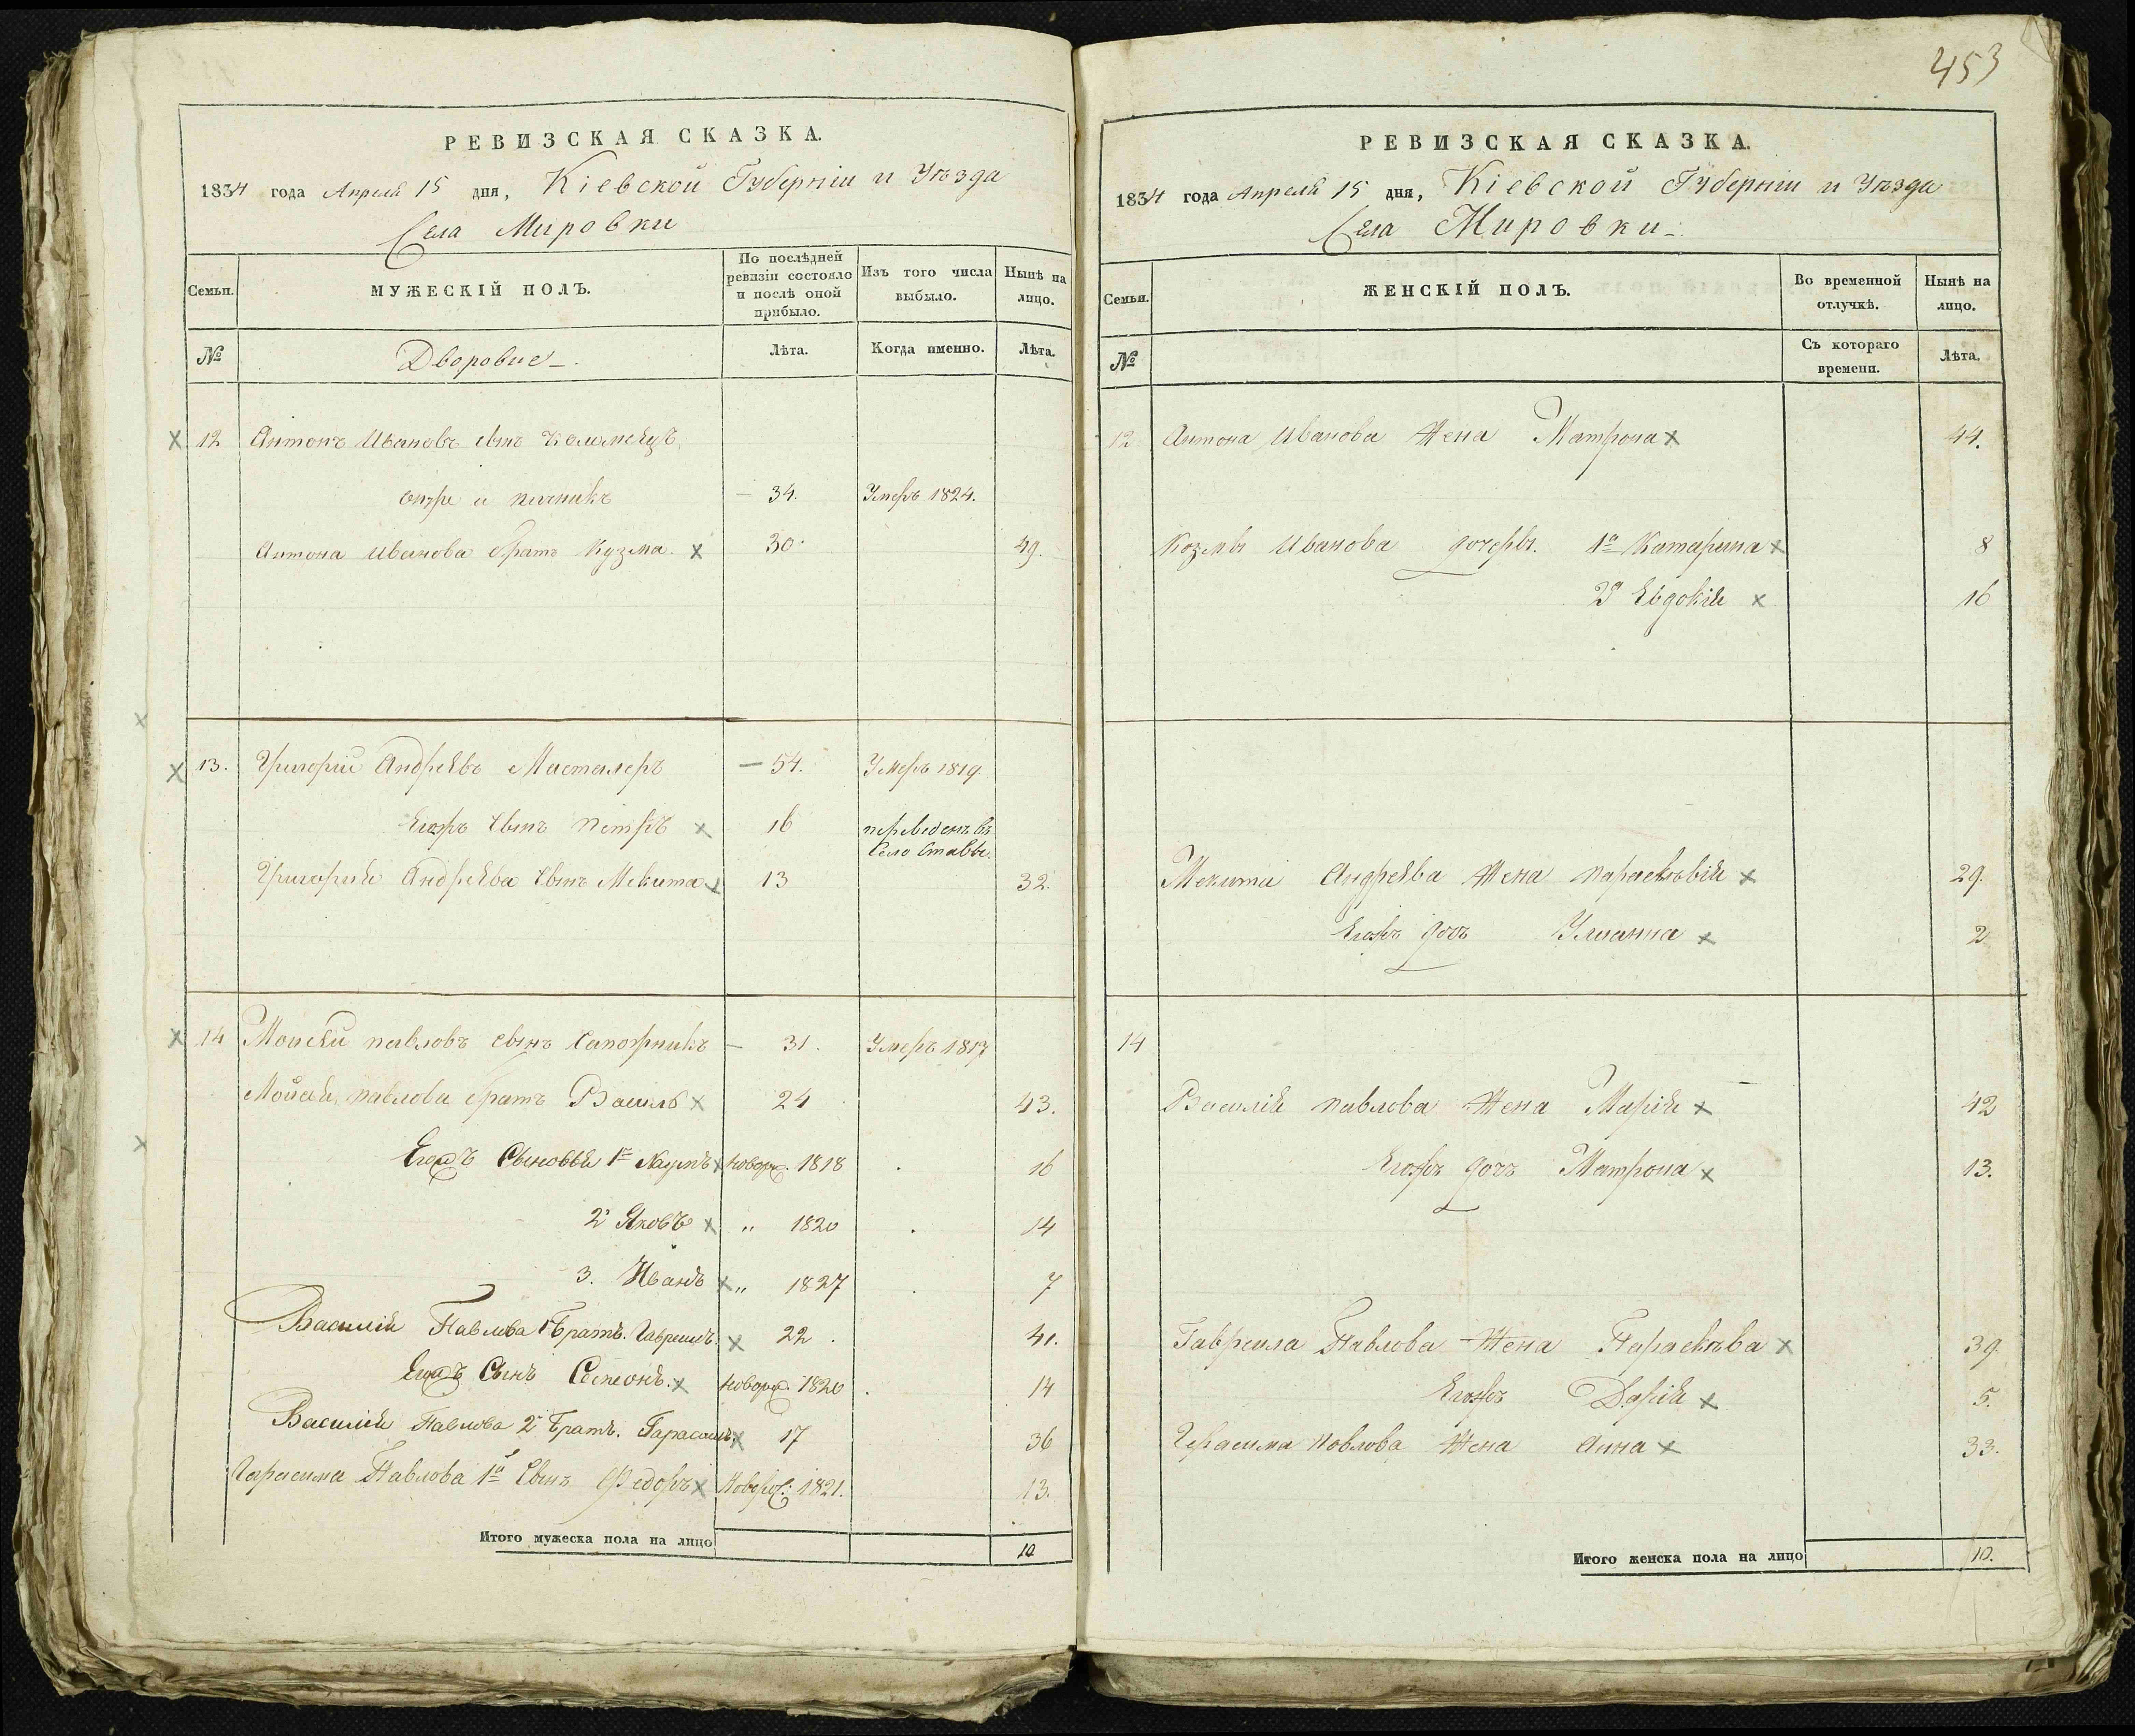 РЕВИЗСКАЯ СКАЗКА.
1834 года Апреля 15 дня, Кіевской Губерніи и Уѣзда
Села Мировки
Семьи.
МУЖЕСКІЙ ПОЛЪ.
По послѣдней ревизіи состояло и послѣ оной прибыло.
Изъ того числа выбыло.
Нынѣ на лицо.
№
Дворовие
Лѣта.
Когда именно.
Лѣта.
12 Антонъ Ивановъ сынъ
онже и печникъ 34. Умеръ 1824.
Антона Иванова братъ Кузма 30. 49.
13. Григорій Андреевъ Мастилеръ 54. Умеръ 1819.
Егожъ сынъ Петръ 16 переведенъ въ
село Ставы.
Григорія Андреева сынъ Мекита 13 32.
14 Моисей Павловъ сынъ Сапожникъ 31. Умеръ 1817
Моисея Павлова братъ Василь 24 43.
Егожъ Сыновья 1й Наумъ новорж. 1818 16
2й Яковъ " 1820 14
3. Иванъ " 1827 7
Василія Павлова 1й братъ. Гаврилъ. 22. 41.
Егожъ Сынъ Семеонъ. новорж. 1820 14
Василія Павлова 2й братъ. Гарасимъ. 17 36
Герасима Павлова 1й Сынъ Федоръ Новорж: 1821. 13.
Итого мужеска пола на лицо 10
453
РЕВИЗСКАЯ СКАЗКА.
1834 года Апреля 15 дня, Кіевской Губерніи и Уѣзда
Села Мировки
Семьи.
ЖЕНСКІЙ ПОЛЪ.
Во временной отлучкѣ.
Нынѣ на лицо.
№
Съ котораго времени.
Лѣта.
12 Антона Иванова Жена Матрона 44.
Козмы Иванова дочеры. 1а Катарина 8
2я Евдокія 16
Мекити Андреева Жена Параскевія 29.
Егожъ дочъ Улианна 2
14
Василія Павлова Жена Марія 42
Егожъ дочъ Матрона 13.
Гавриила Павлова Жена Параскѣва 39.
Егожъ Дарія 5.
Герасима Повлова Жена Анна 33.
Итого женска пола на лицо 10.